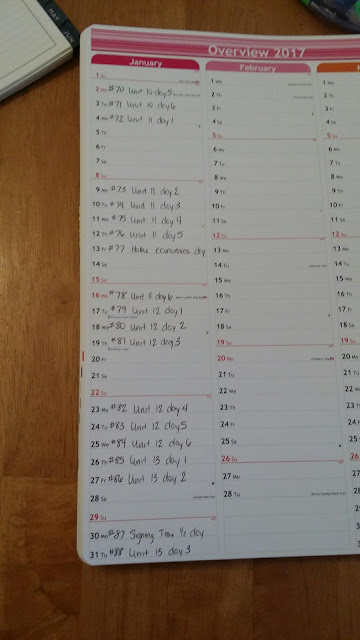 MAY
JUN
Overview 2017
January
February
1 Su
2 Mo #70 Unit 10 day 5
3 Tu #71 Unit 10 day 6
4 We #72 Unit 11 day 1
5 Th
6 Fr
7 Sa
8 Su
9 Mo #73 Unit 11 day 2
10 Tu #74 Unit 11 day 3
11 We #75 Unit 11 day 4
12 Th #76 Unit 11 day 5
13 Fr #77 Home economics day
14 Sa
15 Su
16 Mo #78 Unit 11 day 6
17 Tu #79 Unit 12 day 1
18 We #80 Unit 12 day 2
19 Th #81 Unit 12 day 3
20 Fr
21 Sa
22 Su
23 Mo #82 Unit 12 day 4
24 Tu #83 Unit 12 day 5
25 We #84 Unit 12 day 6
26 Th #85 Unit 13 day 1
27 Fr #86 Unit 13 day 2
28 Sa
29 Su
30 Mo #87 Signing Time 1/2 day
31 Tu #88 Unit 13 day 3
1 We
2 Th
3 Fr
4 Sa
5 Su
6 Mo
7 Tu
8 We
9 Th
10 Fr
11 Sa
12 Su
13 Mo
14 Tu
15 We
16 Th
17 Fr
18 Sa
19 Su
20 Mo
21 Tu
22 We
23 Th
24 Fr
25 Sa
26 Su
27 Mo
28 Tu
1 We
2 Th
3 Fr
4 Sa
5 Su
6 Mo
7 Tu
8 We
9 Th
10 Fr
11 Sa
12 Su
13 Mo
14 Tu
15 We
16 Th
17 Fr
18 Sa
19 Su
20 Mo
21 Tu
22 We
23 Th
24 Fr
25 Sa
26 Su
27 Mo
28 Tu